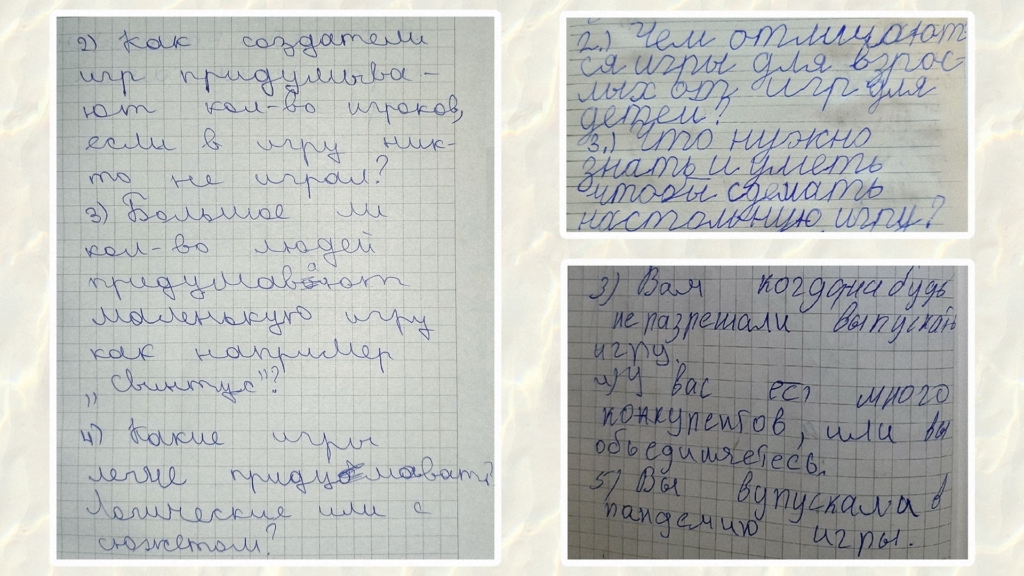 2) Как создатели
игр придумыва-
ют кол-во игроков,
если в игру ник-
то не играл?
3) Большое ли
кол-во людей
придумавают
маленькую игру
как например
„Свинтус"?
4) Какие игры
легче придумавать?
Логические или с
сюжетом?
2.) Чем отличают
ся игры для взрос-
лых от игр для
детей?
3.) Что нужно
знать и уметь
чтобы сделать
настольную игру?
3) Вам когдона будь
не разрешали выпускать
игру.
4) У вас ест много
конкурентов, или вы
объединяетесь.
5) Вы вупускала в
пандемию игры.